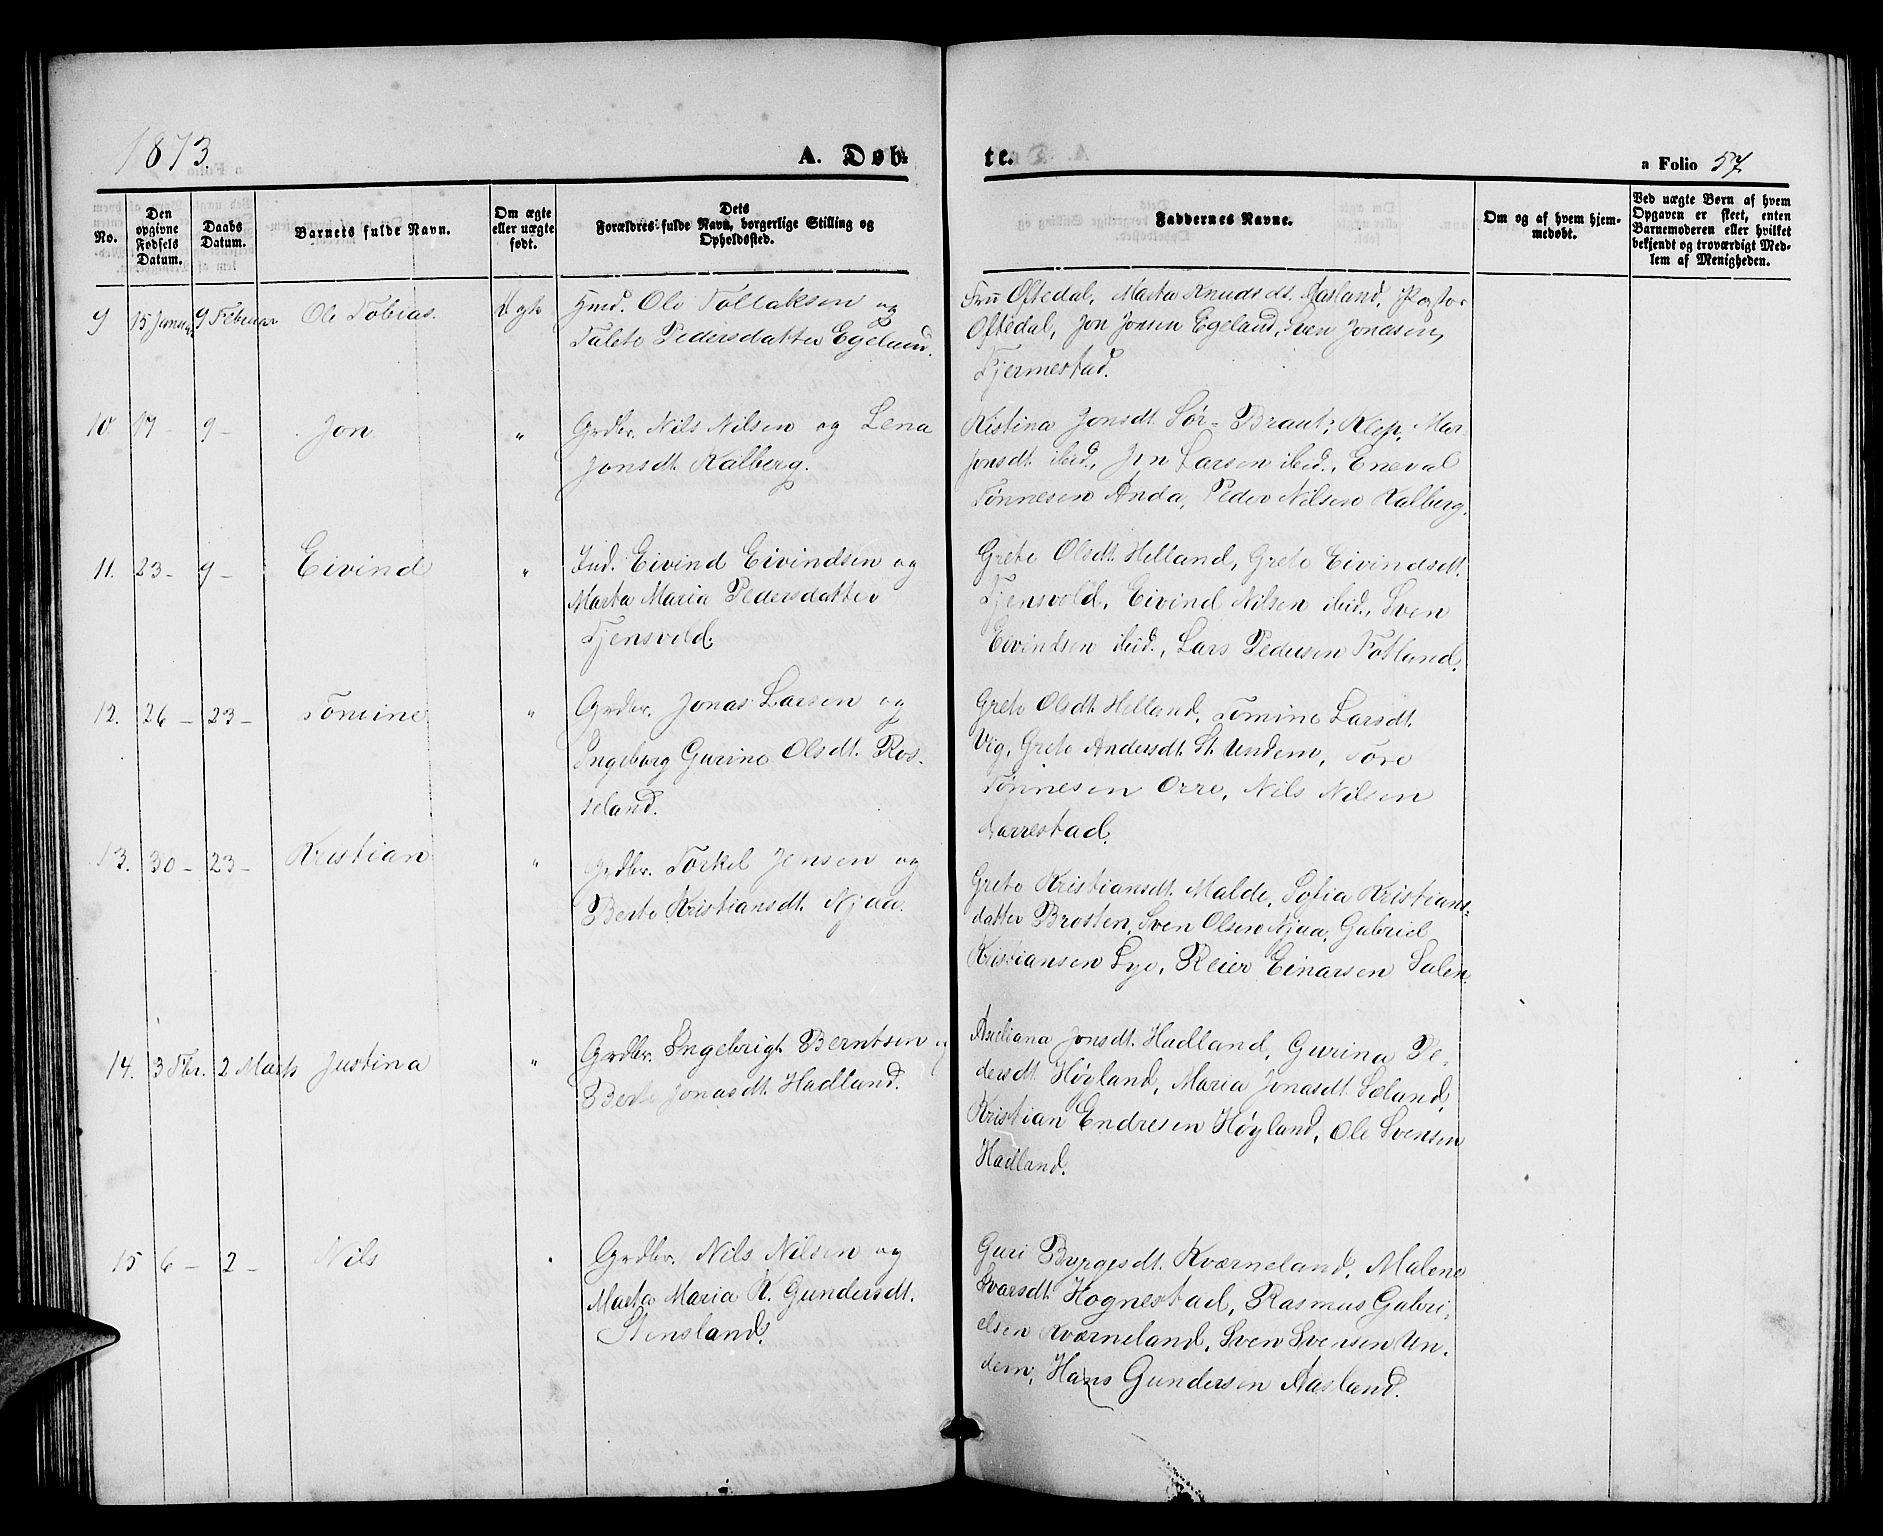 1873.
A. Døb-
te.
a Folio 57
No.
Den opgivne Fødsels Datum.
Daabs Datum.
Barnets fulde Navn.
Om ægte eller uægte født.
Dets Forældres fulde Navn, borgerlige Stilling og Opholdssted.
Faddernes Navne.
Om og af hvem hjemmedøbt.
Ved uægte Børn af hvem Opgaven er skeet, enten Barnemoderen eller hvilket bekjendt og troværdigt Medlem af Menigheden.
9 15 Januar 9 Februar Ole Tobias. Ægte Hmd. Ole Tollaksen og
Talete Pedersdatter Egeland.
Fru Oftedal, Marta Knudsdt. Aasland, Pastor
Oftedal, Jon Jonsen Egeland, Sven Jonasen,
Tjermestad.
10 17 - 9 - Jon " Grdbr. Nils Nilsen og Lena
Jonsdt. Kalberg.
Kistina Jonsdt. Sør-Braut, Klep, Mar-
Jonsdt. ibid., Jon Larsen ibid., Eneval
Tønnesen Anda, Peder Nilsen Kalberg.
11. 23 - 9 - Eivind " Ind. Eivind Eivindsen og
Marta Maria Pedersdatter
Tjensvold.
Grete Olsdt. Helland, Grete Eivindsdt.
Tjensvold, Eivind Nilsen ibid., Sven
Eivindsen ibid., Lars Pedersen Fotland.
12. 26 - 23 - Tomine " Grdbr. Jonas Larsen og
Ingeborg Gurine Olsdt. Ros-
seland.
Grete Olsdt. Helland, Tomine Larsdt.
Vig, Grete Andersdt. St. Undem, Tore
Tønnesen Orre, Nils Nilsen
Harrestad.
13. 30 - 23 - Kristian " Grdbr. Torkel Jensen og
Berte Kristiansdt. Njaa.
Grete Kristiansdt. Malde, Sofia Kristians-
datter Brosten, Sven Olsen Njaa, Gabriel
Kristiansen Lye, Reier Einarsen Salen.
14. 3 Fbr. 2 Marts Justina " Grdbr. Ingebrigt Berntsen og
Berte Jonasdt. Hadland.
Jonsdt. Hadland, Gurina Pe-
dersdt. Høyland, Maria Jonasdt. Sæland,
Kristian Endresen Høyland, Ole Svensen
Hadland.
15 6 - 2 - Nils " Grdbr. Nils Nilsen og
Marta Maria K. Gundersdt.
Stensland.
Guri Byrgesdt. Kværneland, Malene
Ivarsdt. Hognestad, Rasmus Gabri-
elsen Kværneland, Sven Svensen Un-
dem, Hans Gundersen Aasland.